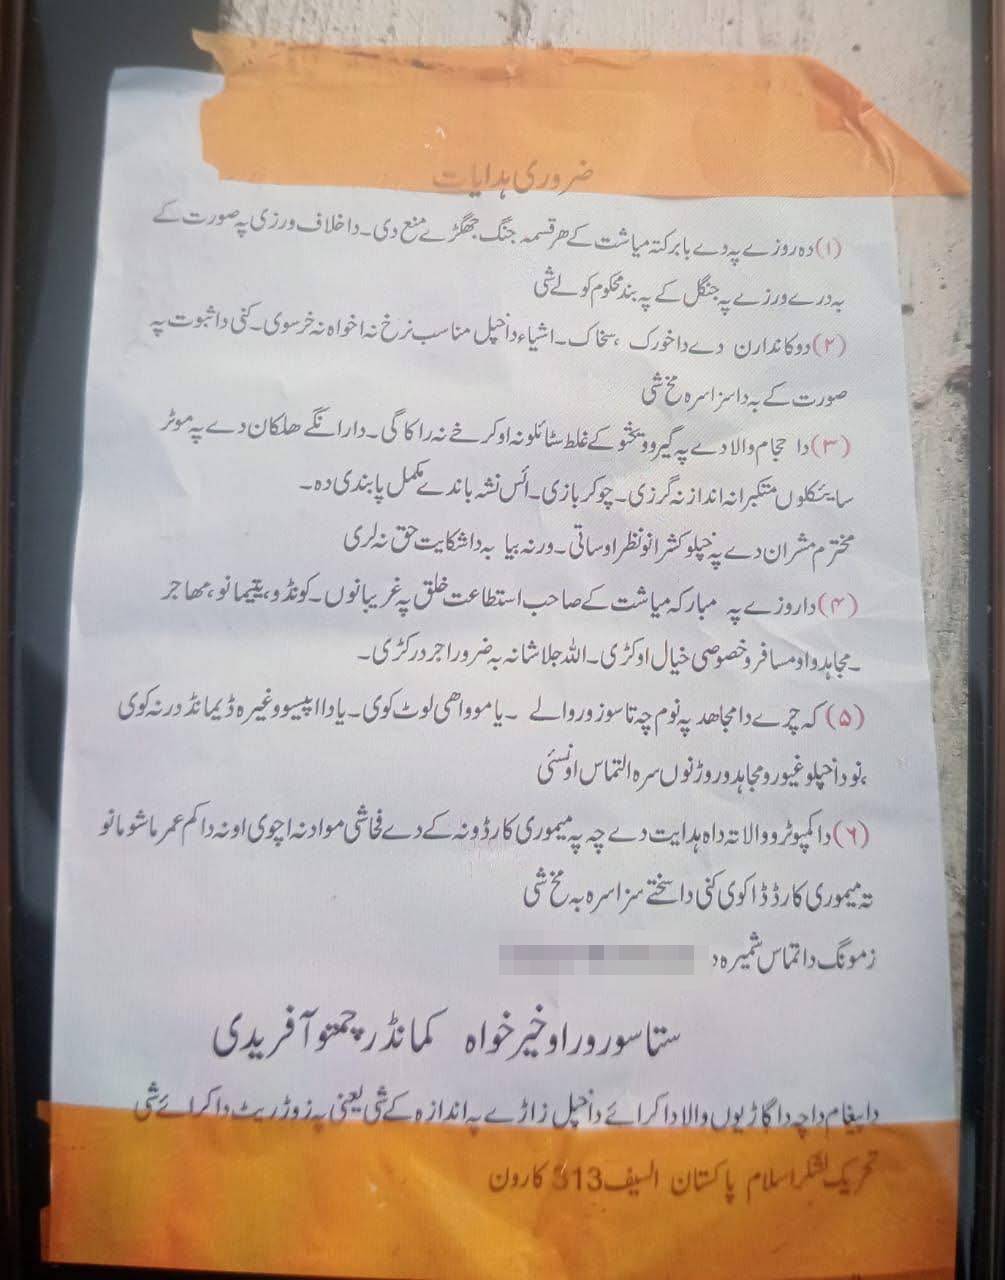 ضروری ہدایات
(۱) دہ روزے پہ دے بابرکتہ میاشت کے ھر قسمہ جنگ جھگڑے منع دی۔ دا خلاف ورزی پہ صورت کے
بہ درے ورزے پہ جنگل کے پہ بند محکوم کولے شی
(۲) دوکاندارن دے دا خورک ، سخاک۔ اشیاء دا خپل مناسب نرخ نہ اخواہ نہ خرسوی۔ کنی دا ثبوت پہ
صورت کے بہ دا سزا سرہ مخ شی
(۳) دا حجام والا دے پہ گیرو ویختو کے غلط سٹائلونہ او کرخے نہ راکاگی۔ دارانگے ھلکان دے پہ موٹر
سایئکلوں متکبرانہ انداز نہ گرزی۔ چوکر بازی۔ ائس نشہ باندے مکمل پابندی دہ۔
مخترم مشران دے پہ خپلو کشرانو نظر اوساتی۔ ورنہ بیا بہ دا شکایت حق نہ لری
(۴) دا روزے پہ مبارکہ میاشت کے صاحب استطاعت خلق پہ غریبانوں۔ کونڈو، یتیمانو، مھاجر
۔ مجاہدو او مسافرو خصوصی خیال اوکڑی۔ اللہ جلا شانہ بہ ضرور اجر درکڑی۔
(۵) کہ چرے دا مجاھد پہ نوم چہ تاسو زوروالے ۔ یا مو واھی لوٹ کوی۔ یا دا پیسو وغیرہ ڈیمانڈ درنہ کوی
،نو دا خپلو غیورو مجاہدو وروڑنوں سرہ التماس اونسئی
(۶) دا کمپوٹرو والا تہ داہ ہدایت دے چہ پہ میموری کارڈونہ کے دے فحاشی مواد نہ اچوی او نہ دا کم عمر ماشومانو
تہ میموری کارڈ ڈاکوی کنی دا سختے سزا سرہ بہ مخ شی
زمونگ دا تماس شمیرہ د
ستاسو رور او خیر خواہ کمانڈر چمتو آفریدی
دا پیغام دا چہ دا گاڑیوں والا دا کرائے دا خپل زاڑے پہ اندازہ کے شی یعنی پہ زوڑ ریٹ دا کرائے شی
تحریک لشکر اسلام پاکستان السیف 313 کارون